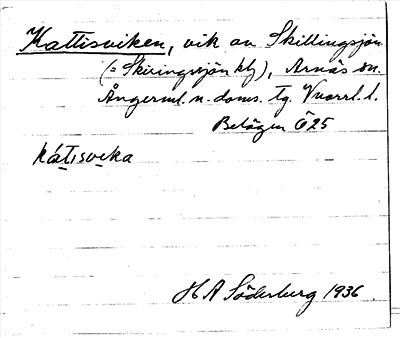 Kattisviken, vik av Skillingsjön
(= Skiringssjön kbf), Arnäs sn.
Ångerml. n. doms. tg. Vnorrl. l.
Belägen Ö 25
kátisvika
H A Söderberg 1936